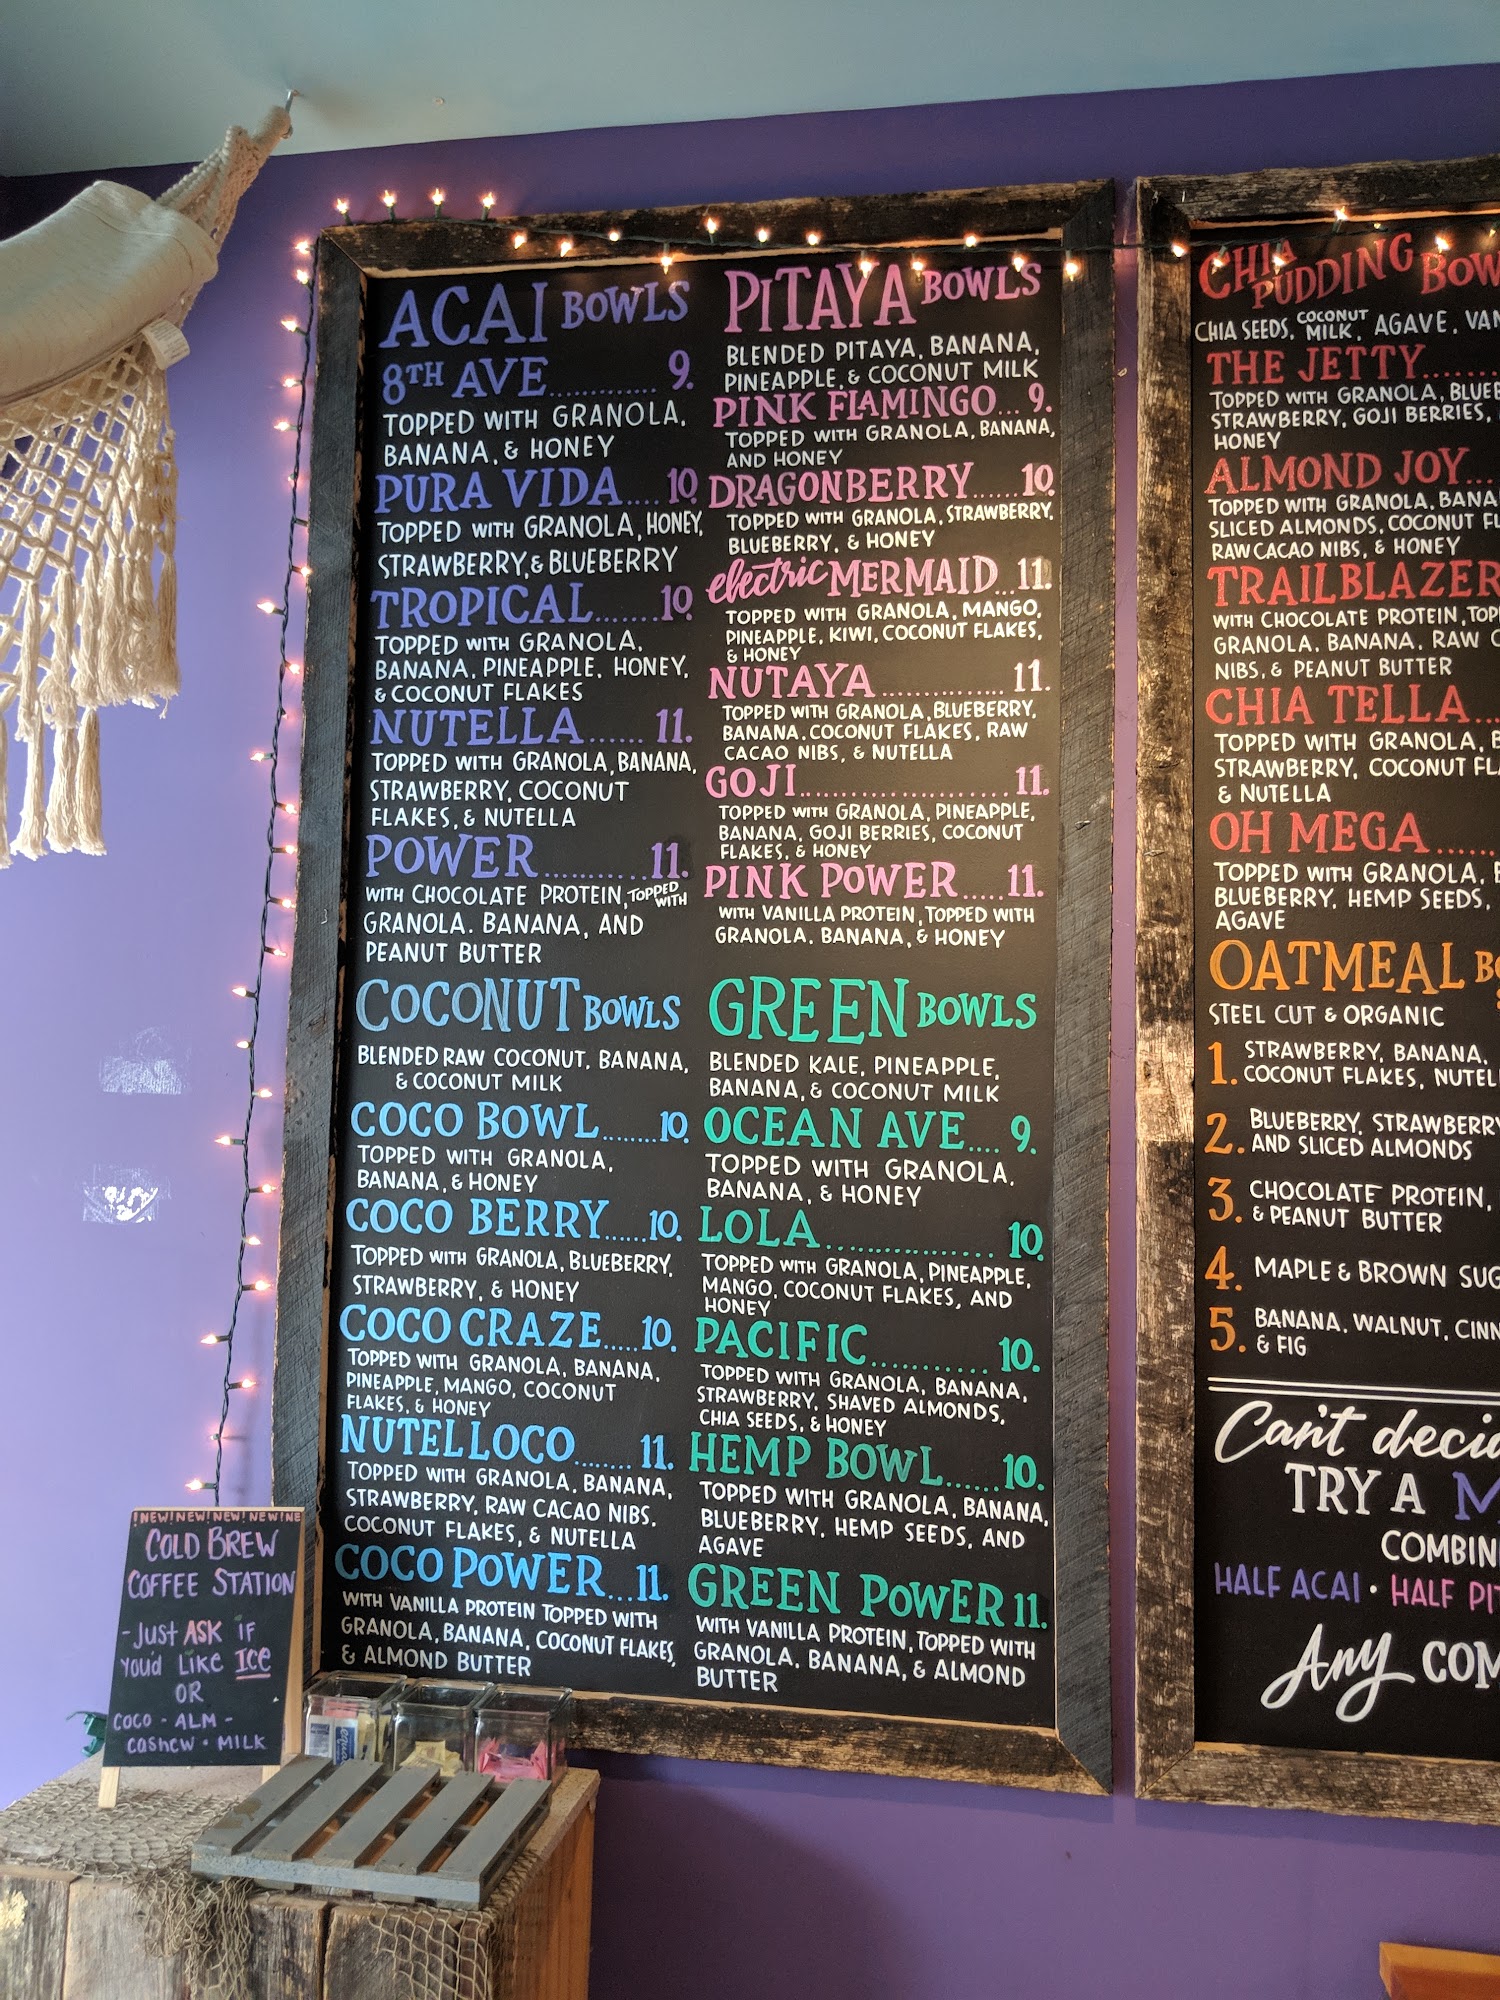 ACAI BOWLS
8TH AVE............ 9.
TOPPED WITH GRANOLA,
BANANA, & HONEY
PURA VIDA.... 10.
TOPPED WITH GRANOLA, HONEY,
STRAWBERRY, & BLUEBERRY
TROPICAL.......10.
TOPPED WITH GRANOLA,
BANANA, PINEAPPLE, HONEY,
& COCONUT FLAKES
NUTELLA...... 11.
TOPPED WITH GRANOLA, BANANA,
STRAWBERRY, COCONUT
FLAKES, & NUTELLA
POWER...........11.
WITH CHOCOLATE PROTEIN, TOPPED WITH
GRANOLA. BANANA, AND
PEANUT BUTTER
COCONUT BOWLS
BLENDED RAW COCONUT, BANANA,
& COCONUT MILK
COCO BOWL........10.
TOPPED WITH GRANOLA,
BANANA, & HONEY
COCO BERRY......10.
TOPPED WITH GRANOLA, BLUEBERRY,
STRAWBERRY, & HONEY
COCO CRAZE.....10.
TOPPED WITH GRANOLA, BANANA,
PINEAPPLE, MANGO, COCONUT
FLAKES, & HONEY
NUTELLOCO........ 11.
TOPPED WITH GRANOLA, BANANA,
STRAWBERRY, RAW CACAO NIBS,
COCONUT FLAKES, & NUTELLA
COCO POWER...11.
WITH VANILLA PROTEIN TOPPED WITH
GRANOLA, BANANA, COCONUT FLAKES,
& ALMOND BUTTER
PITAYA BOWLS
BLENDED PITAYA, BANANA,
PINEAPPLE, & COCONUT MILK
PINK FLAMINGO... 9.
TOPPED WITH GRANOLA, BANANA,
AND HONEY
DRAGONBERRY......10.
TOPPED WITH GRANOLA, STRAWBERRY,
BLUEBERRY, & HONEY
electric MERMAID..11.
TOPPED WITH GRANOLA, MANGO,
PINEAPPLE, KIWI, COCONUT FLAKES,
& HONEY
NUTAYA.............. 11.
TOPPED WITH GRANOLA, BLUEBERRY,
BANANA, COCONUT FLAKES, RAW
CACAO NIBS, & NUTELLA
GOJI........................11.
TOPPED WITH GRANOLA, PINEAPPLE,
BANANA, GOJI BERRIES, COCONUT
FLAKES, & HONEY
PINK POWER.....11.
WITH VANILLA PROTEIN, TOPPED WITH
GRANOLA, BANANA, & HONEY
GREEN BOWLS
BLENDED KALE, PINEAPPLE,
BANANA, & COCONUT MILK
OCEAN AVE.... 9.
TOPPED WITH GRANOLA,
BANANA, & HONEY
LOLA................. 10.
TOPPED WITH GRANOLA, PINEAPPLE,
MANGO, COCONUT FLAKES, AND
HONEY
PACIFIC........... 10.
TOPPED WITH GRANOLA, BANANA,
STRAWBERRY, SHAVED ALMONDS,
CHIA SEEDS, & HONEY
HEMP BOWL......10.
TOPPED WITH GRANOLA, BANANA,
BLUEBERRY, HEMP SEEDS, AND
AGAVE
GREEN POWER 11.
WITH VANILLA PROTEIN, TOPPED WITH
GRANOLA, BANANA, & ALMOND
BUTTER
CHIA PUDDING
CHIA SEEDS, COCONUT MILK, AGAVE,
THE JETTY........
TOPPED WITH GRANOLA,
STRAWBERRY, GOJI BERRIES,
HONEY
ALMOND JOY...
TOPPED WITH GRANOLA,
SLICED ALMONDS, COCONUT
RAW CACAO NIBS, & HONEY
TRAILBLAZER
WITH CHOCOLATE PROTEIN,
GRANOLA, BANANA, RAW
NIBS, & PEANUT BUTTER
CHIA TELLA...
TOPPED WITH GRANOLA,
STRAWBERRY, COCONUT
& NUTELLA
OH MEGA......
TOPPED WITH GRANOLA,
BLUEBERRY, HEMP SEEDS,
AGAVE
OATMEAL
STEEL CUT & ORGANIC
1. STRAWBERRY, BANANA,
COCONUT FLAKES,
2. BLUEBERRY, STRAWBERRY
AND SLICED ALMONDS
3. CHOCOLATE PROTEIN,
& PEANUT BUTTER
4. MAPLE & BROWN
5. BANANA, WALNUT,
& FIG
Can't
TRY A
HALF ACAI • HALF
Any
!NEW!NEW!NEW!NEW!NE
COLD BREW
COFFEE STATION
- JUST ASK IF
YOU'D LIKE ICE
OR
COCO - ALM -
CASHEW • MILK